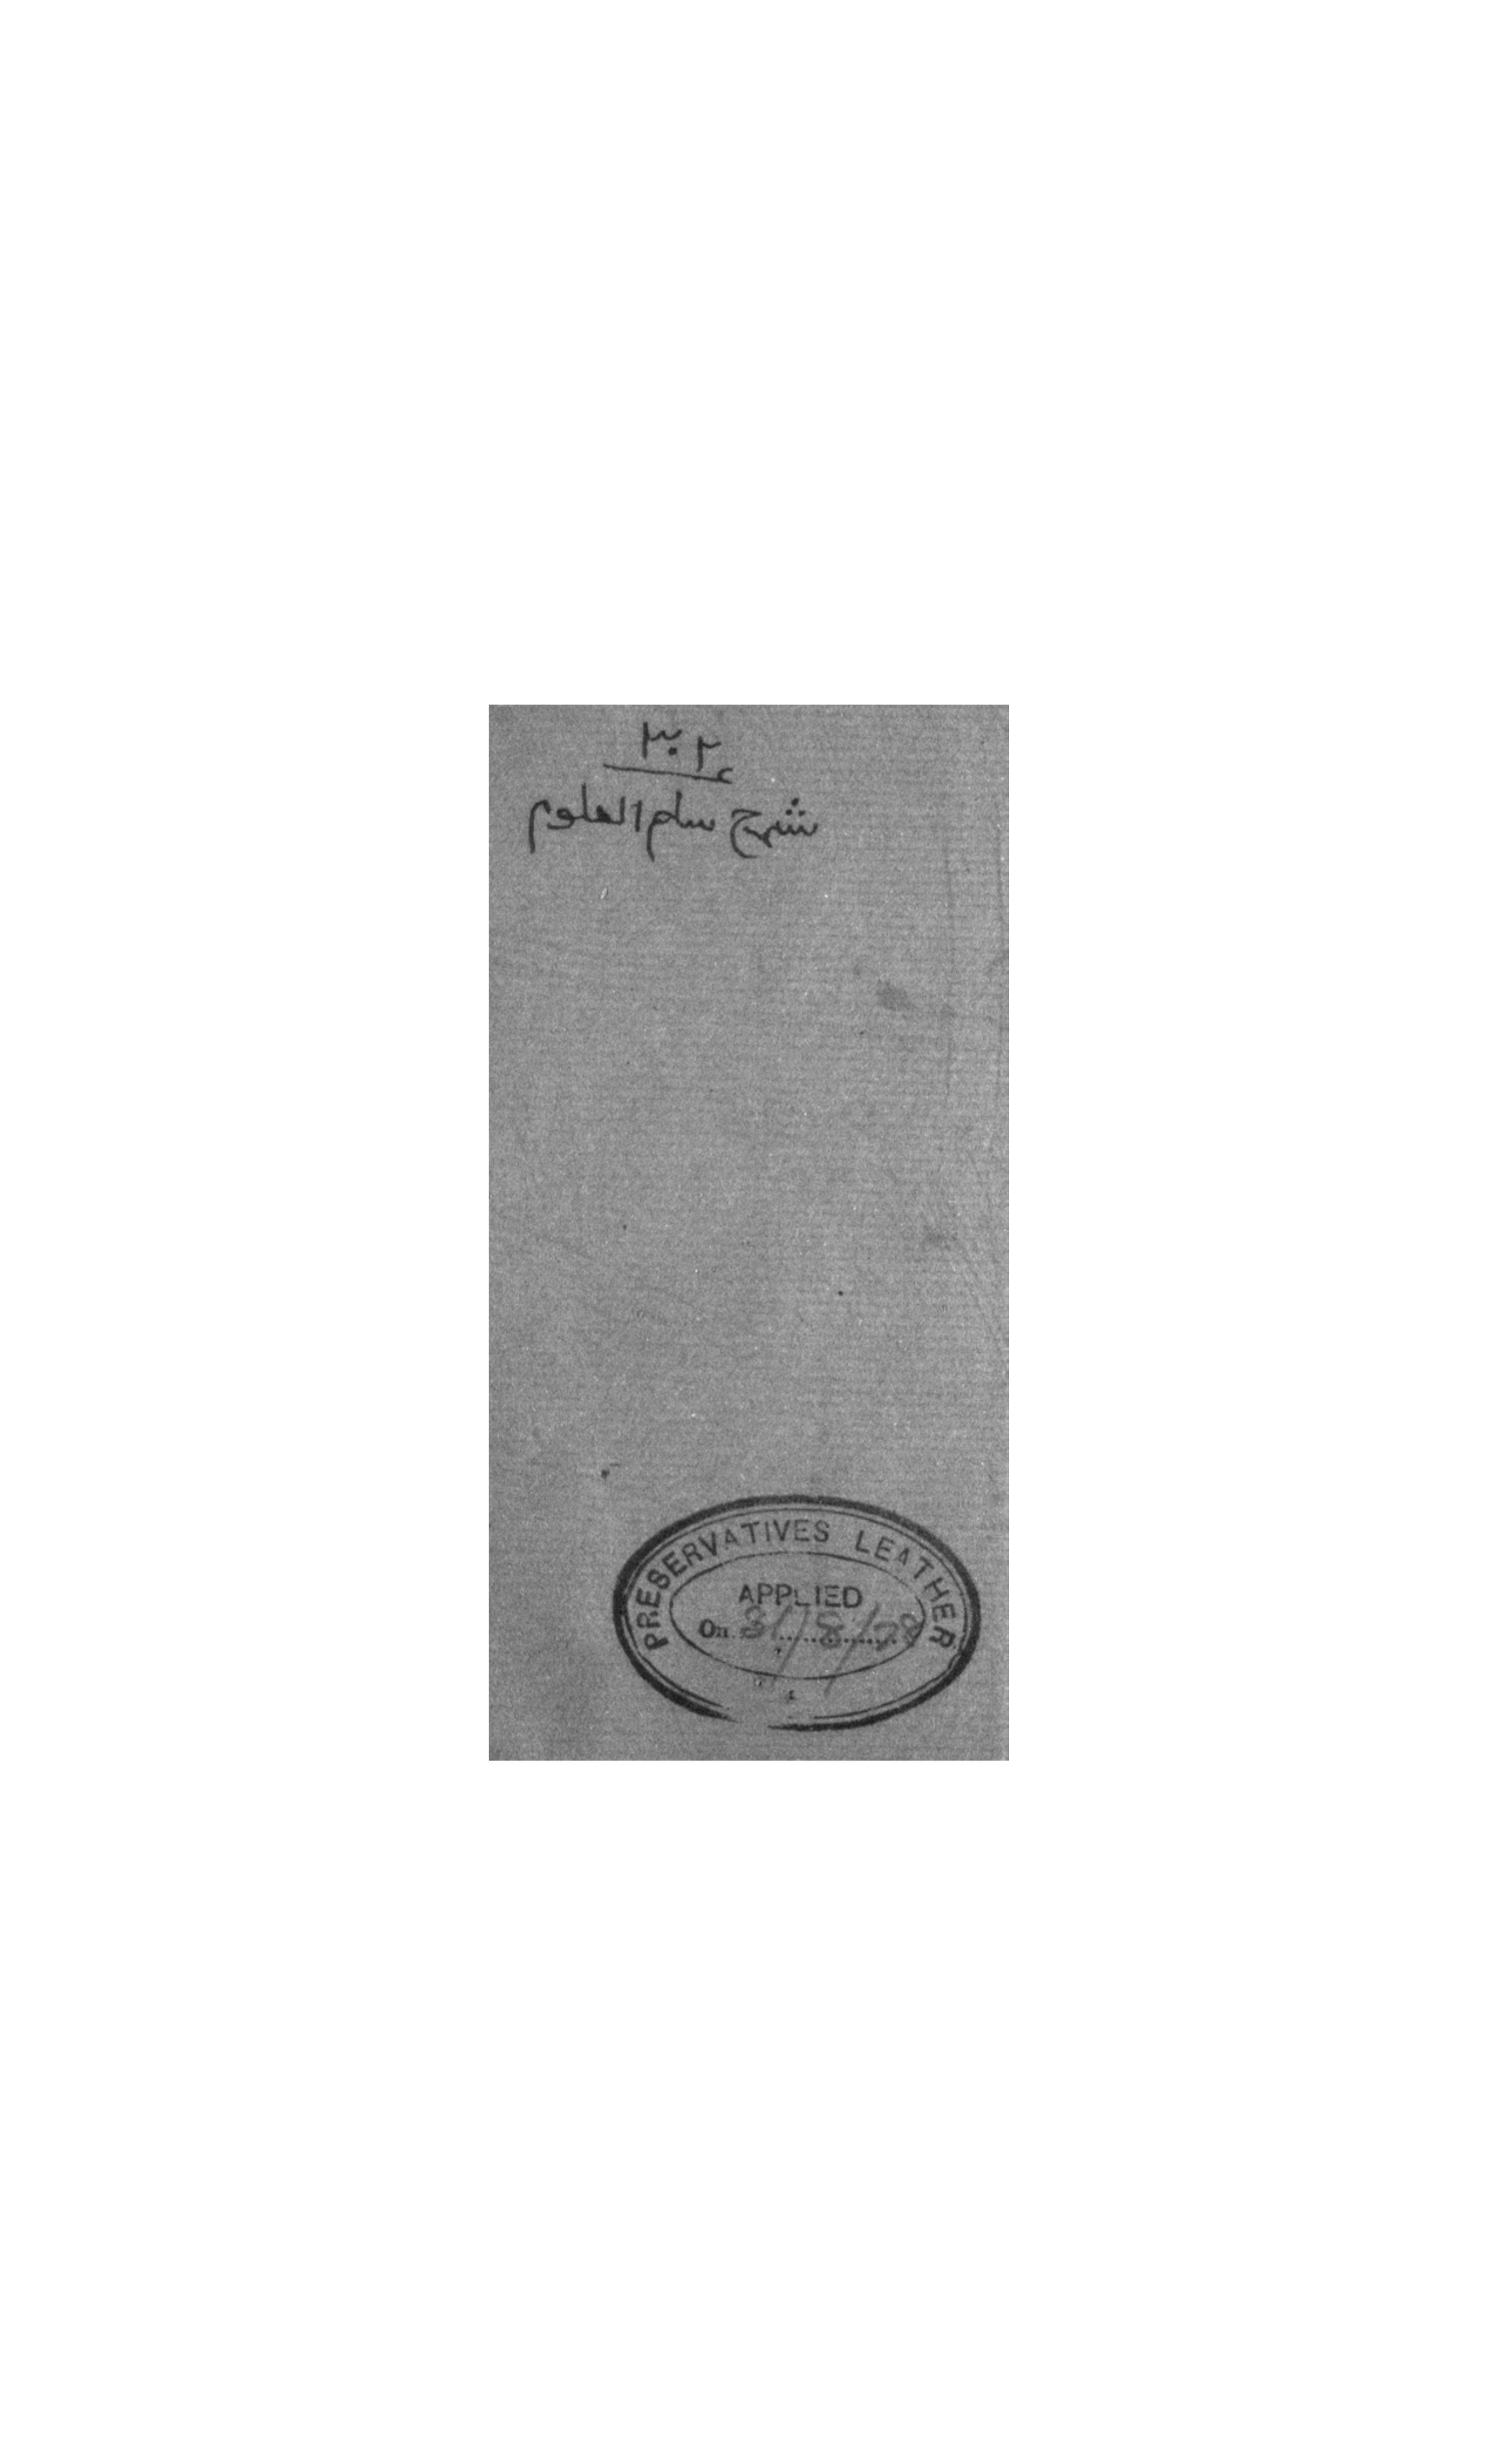 ٣٠٢
شرح سلم العلوم
PRESERVATIVES LEATHER
APPLIED
On 31/8/78